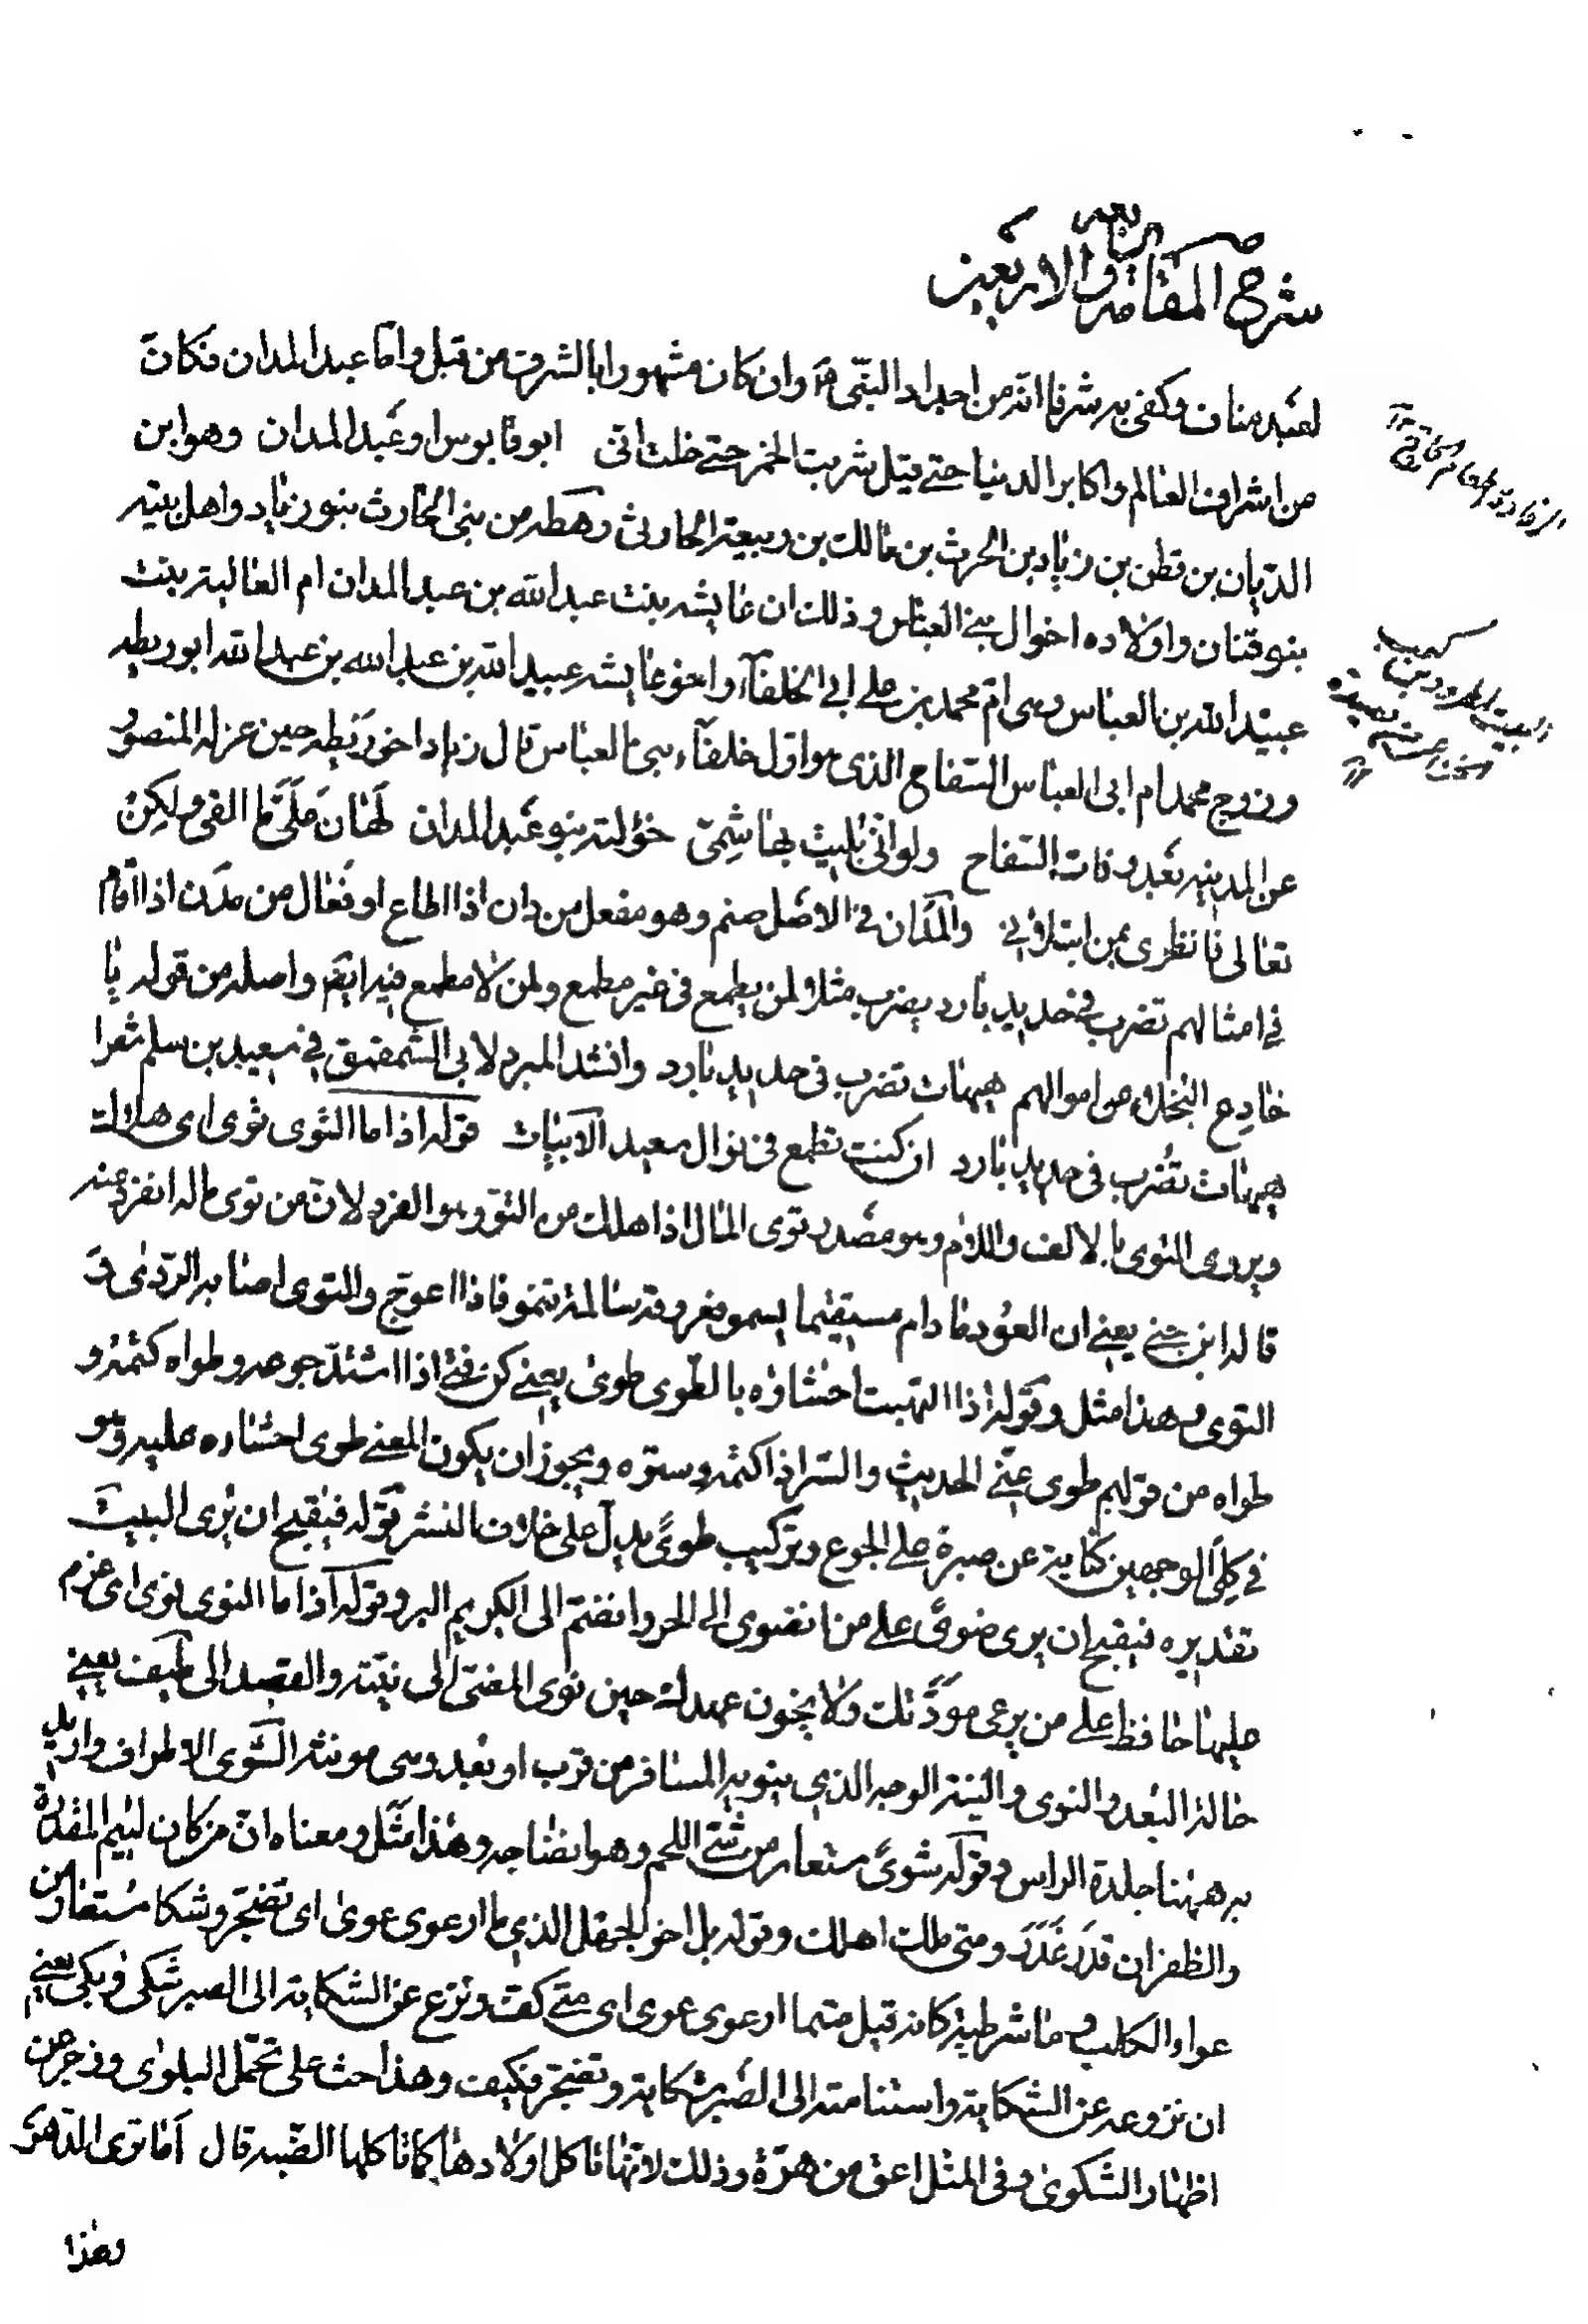 شرح المقامة الرابعة والاربعين
لعبد مناف وكفى به شرفا انه من اجداد النبي م وان كان مشهورا بالشرف من قبل واما عبد المدان فكان
من اشراف العالم واكابر الدنيا حتى قيل شربت الخمر حتى خلت انى ابو قابوس او عبد المدان وهو ابن
الديان بن قطن بن زياد بن الحرث بن مالك بن ربيعة الحارثى رهطه من بنى الحارث بنو زياد واهل بيته
بنو قنان واولاده اخوال بنى العباس وذلك ان عايشه بنت عبد الله بن عبد المدان ام العالية بنت
عبيد الله بن العباس وهى ام محمد بن على ابى الخلفآء واخو عايشه عبيد الله بن عبد الله بن عبد الله ابو ريطه
وزوج محمد ام ابى العباس السفاح الذى هو اول خلفآء بنى العباس قال زياد اخو ريطه حين عزله المنصور
عن المدينه بعد وفات السفاح ولو انى بليت بهاشمى خؤلته بنو عبد المدان لهان على ما القى ولكن
تعالى فانظرى بمن ابتلانى والمدان فى الاصل صنم وهو مفعل من دان اذا اطاع او فعال من مدن اذا اقام
فى امثالهم تضرب فى حديد بارد يضرب مثلا لمن يطمع فى غير مطمع ولمن لا مطمع فيه ايضا واصله من قوله يا
خادع البخلاء عن اموالهم هيهات تضرب فى حديد بارد وانشد المبرد لابى الشمقمق فى سعيد بن سلم شعرا
هيهات تضرب فى حديد بارد ان كنت تطمع فى نوال سعيد الابيات قوله اذا ما التوى توى اى هلك
ويروى التوى بالالف واللام وهو مصدر توى المال اذا هلك من التو وهو الفرد لان من توى ماله انفرد عنه
قاله ابن جنى يعنى ان العود مادام مستقيما يسمو فعروقه سالمة تنمو فاذا اعوج والتوى اصابه الردى و
التوى وهذا مثل وقوله اذا التهبت احشاؤه بالطوى طوى يعنى كن فتى اذا اشتد جوعه وطواه كتمه و
طواه من قولهم طوى عنى الحديث والسر اذا كتمه وستره ويجوز ان يكون المعنى طوى احشاره عليه وهو
فى كلى الوجهين كناية عن صبره على الجوع وتركيب طوى يدل على خلاف النشر قوله فيقبح ان يرى البيت
تقديره فيقبح ان يرى ضوى على من انضوى الى الحر وانضم الى الكريم البر وقوله اذا ما النوى نوى اى عزم
عليها حافظ على من يرعى مودتك ولا يخون عهدك حين نوى المفتى الى نيته والقصد الى طيف يعنى
حالة البعد والنوى والنية الوجه الذى ينويه المسافر من قرب او بعد وهى مونثه الشوى الاطراف واريد
به ههنا جلدة الراس وقوله شوى مستعار من شى اللحم وهو انضاجه وهذا مثل ومعناه ان من كان لئيم المقدرة
والظفر ان قدر غدر ومتى ملك اهلك وقوله بل اخو الجهل الذى ما ارعوى عوى اى تضجر وشكا مستعار من
عواء الكلب وما شرطية كانه قيل متما ارعوى عوى اى متى كف ونزع عن الشكاية الى الصبر شكى وبكى يعنى
ان نزوعه عن الشكاية واستنامته الى الصبر شكاية وتضجر فكيف وهذا حث على تحمل البلوى وزجر عن
اظهار الشكوى وفى المثل اعق من هرة وذلك لانها تاكل اولادها كما تاكلها الضبه قال اما ترى الدهر
وهذا